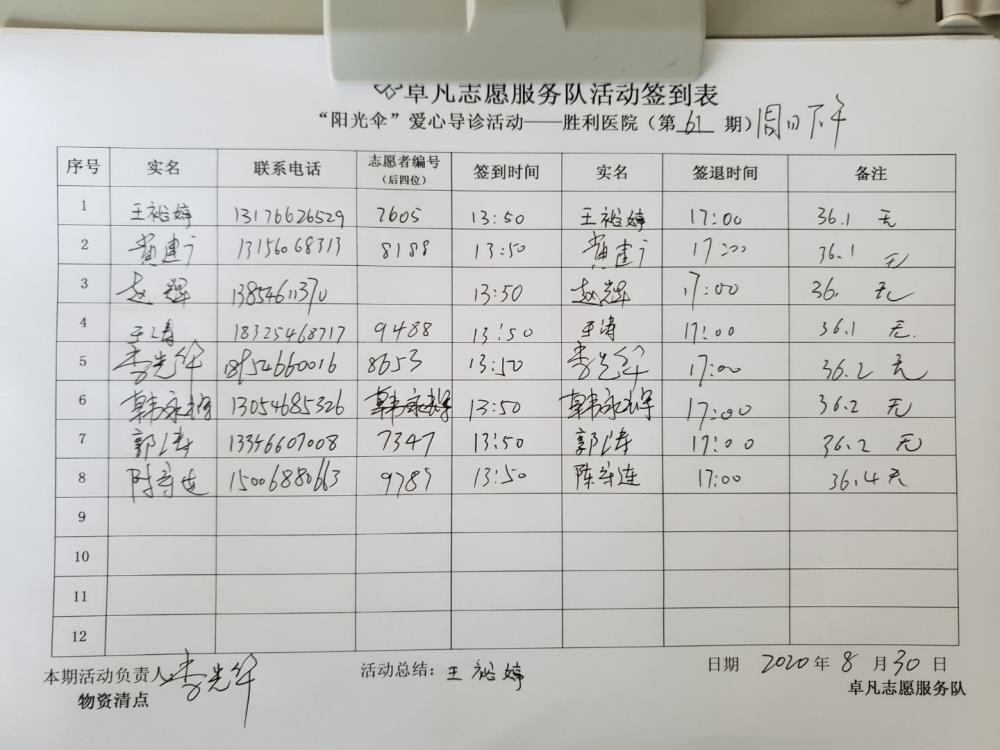 卓凡志愿服务队活动签到表
“阳光伞”爱心导诊活动——胜利医院（第 61 期）周日下午
序号 实名 联系电话 志愿者编号（后四位） 签到时间 实名 签退时间 备注
1 王裕婷 13176626529 7605 13:50 王裕婷 17:00 36.1 无
2 黄建广 13156068313 8188 13:50 黄建广 17:00 36.1 无
3 赵辉 13854611370 13:50 赵辉 17:00 36. 无
4 王涛 18325468717 9488 13:50 王涛 17:00 36.1 无.
5 李光华 18954660016 8653 13:50 李光华 17:00 36.2 无
6 韩永 13054685326 韩永 13:50 韩永 17:00 36.2 无
7 郭涛 13346607008 7347 13:50 郭涛 17:00 36.2 无
8 陈守连 15006880663 9787 13:50 陈守连 17:00 36.4 无
9
10
11
12
本期活动负责人: 李光华 活动总结: 王裕婷 日期 2020 年 8 月 30 日
物资清点 卓凡志愿服务队